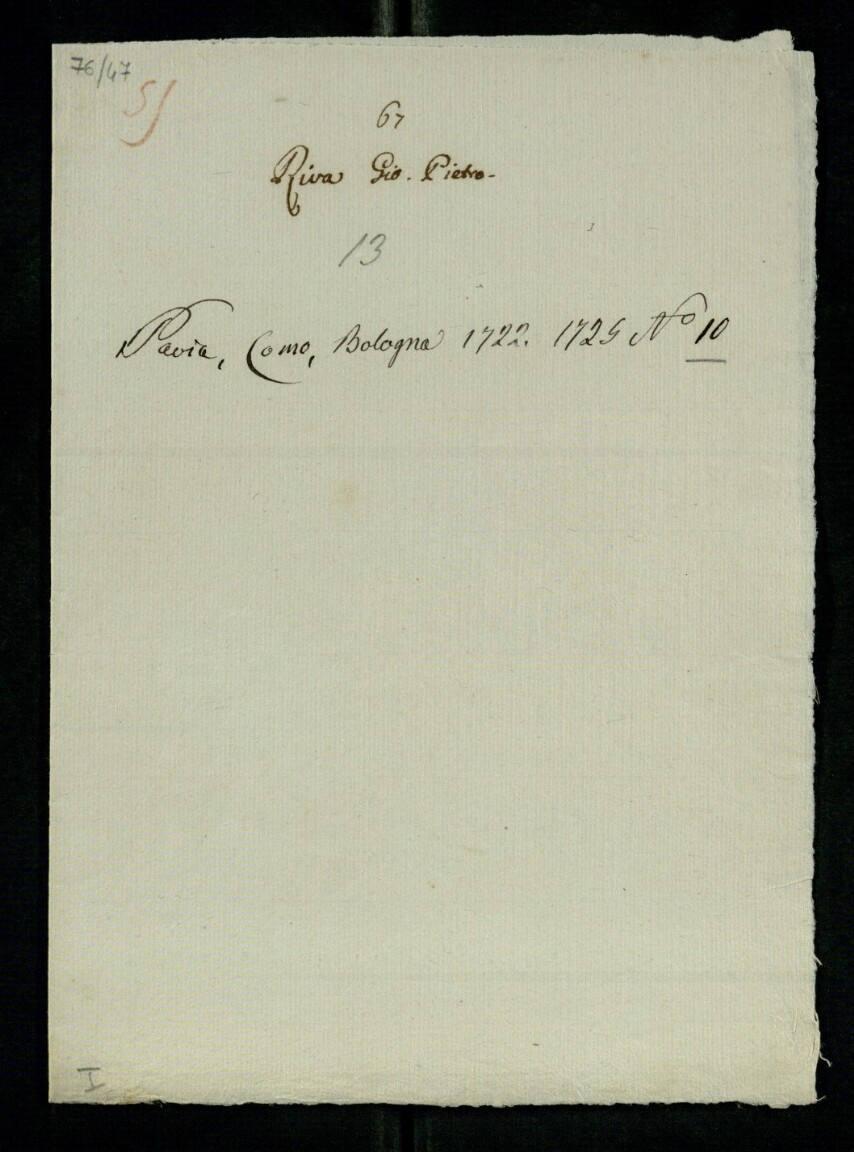 76/47
5)
67
Riva Gio. Pietro-
13
Pavia, Como, Bologna 1722. 1725 No 10
I